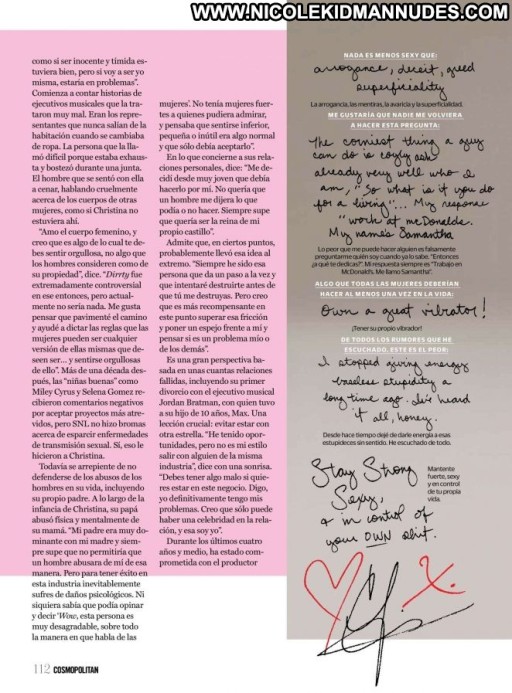 WWW.NICOLEKIDMANNUDES.COM
como si ser inocente y tímida es-
tuviera bien, pero si voy a ser yo
misma, estaría en problemas”.
Comienza a contar historias de
ejecutivos musicales que la tra-
taron muy mal. Eran los repre-
sentantes que nunca salían de la
habitación cuando se cambiaba
de ropa. La persona que la lla-
mó difícil porque estaba exhaus-
ta y bostezó durante una junta.
El hombre que se sentó con ella
a cenar, hablando cruelmente
acerca de los cuerpos de otras
mujeres, como si Christina no
estuviera ahí.
“Amo el cuerpo femenino, y
creo que es algo de lo cual te de-
bes sentir orgullosa, no algo que
los hombres consideren como de
su propiedad”, dice. “Dirrty fue
extremadamente controversial
en ese entonces, pero actual-
mente no sería nada. Me gusta
pensar que pavimenté el camino
y ayudé a dictar las reglas que las
mujeres pueden ser cualquier
versión de ellas mismas que de-
seen ser... y sentirse orgullosas
de ello”. Más de una década des-
pués, las “niñas buenas” como
Miley Cyrus y Selena Gomez re-
cibieron comentarios negativos
por aceptar proyectos más atre-
vidos, pero SNL no hizo bromas
acerca de esparcir enfermedades
de transmisión sexual. Sí, eso le
hicieron a Christina.
Todavía se arrepiente de no
defenderse de los abusos de los
hombres en su vida, incluyendo
su propio padre. A lo largo de la
infancia de Christina, su papá
abusó física y mentalmente de
su mamá. “Mi padre era muy do-
minante con mi madre y siem-
pre supe que no permitiría que
un hombre abusara de mí de esa
manera. Pero para tener éxito en
esta industria inevitablemente
sufres de daños psicológicos. Ni
siquiera sabía que podía opinar
y decir ‘Wow, esta persona es
muy desagradable, sobre todo
la manera en que habla de las
mujeres’. No tenía mujeres fuer-
tes a quienes pudiera admirar,
y pensaba que sentirse inferior,
pequeña o inútil era algo normal
y que sólo debía aceptarlo”.
En lo que concierne a sus rela-
ciones personales, dice: “Me de-
cidí desde muy joven que debía
hacerlo por mí. No quería que
un hombre me dijera lo que
podía o no hacer. Siempre supe
que quería ser la reina de mi
propio castillo”.
Admite que, en ciertos puntos,
probablemente llevó esa idea al
extremo. “Siempre he sido esa
persona que da un paso a la vez y
que intentaré destruirte antes de
que tú me destruyas. Pero creo
que es más recompensante en
este punto superar esa fricción
y poner un espejo frente a mí y
pensar si es un problema mío o
de los demás”.
Es una gran perspectiva ba-
sada en unas cuantas relaciones
fallidas, incluyendo su primer
divorcio con el ejecutivo musical
Jordan Bratman, con quien tuvo
a su hijo de 10 años, Max. Una
lección crucial: evitar estar con
otra estrella. “He tenido opor-
tunidades, pero no es mi estilo
salir con alguien de la misma
industria”, dice con una sonrisa.
“Debes tener algo malo si quie-
res estar en este negocio. Digo,
yo definitivamente tengo mis
problemas. Creo que sólo puede
haber una celebridad en la rela-
ción, y esa soy yo”.
Durante los últimos cuatro
años y medio, ha estado com-
prometida con el productor
NADA ES MENOS SEXY QUE:
arrogance, deceit, greed
superficiality
La arrogancia, las mentiras, la avaricia y la superficialidad.
ME GUSTARÍA QUE NADIE ME VOLVIERA
A HACER ESTA PREGUNTA:
The corniest thing a guy
can do is coyly ask
already very well who I
am, “So what is it you do
for a living”... My response
“work at mcDonalds.
My name's Samantha
Lo peor que me puede hacer alguien es falsamente
preguntarme quién soy cuando ya lo sabe. “Entonces
¿a qué te dedicas?”. Mi respuesta siempre es “Trabajo en
McDonald’s. Me llamo Samantha”.
ALGO QUE TODAS LAS MUJERES DEBERÍAN
HACER AL MENOS UNA VEZ EN LA VIDA:
Own a great vibrator!
¡Tener su propio vibrador!
DE TODOS LOS RUMORES QUE HE
ESCUCHADO, ESTE ES EL PEOR:
I stopped giving energy
baseless stupidity a
long time ago. I've heard
it all, honey.
Desde hace tiempo dejé de darle energía a esas
estupideces sin sentido. He escuchado de todo.
Stay Strong
Sexy,
& in control of
your OWN shit.
Mantente
fuerte, sexy
y en control
de tu propia
vida.
X.
112 COSMOPOLITAN